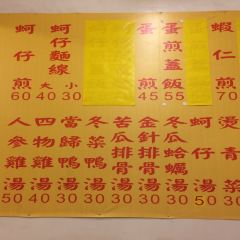 蚵仔煎60
蚵仔麵線 大40 小30
蛋煎45
蛋煎蓋飯55
蝦仁煎70
人參雞湯50
四物雞湯40
當歸鴨湯30
冬菜鴨湯30
苦瓜排骨湯30
金針排骨湯30
冬瓜蛤蠣湯30
蚵仔湯50
燙青菜30